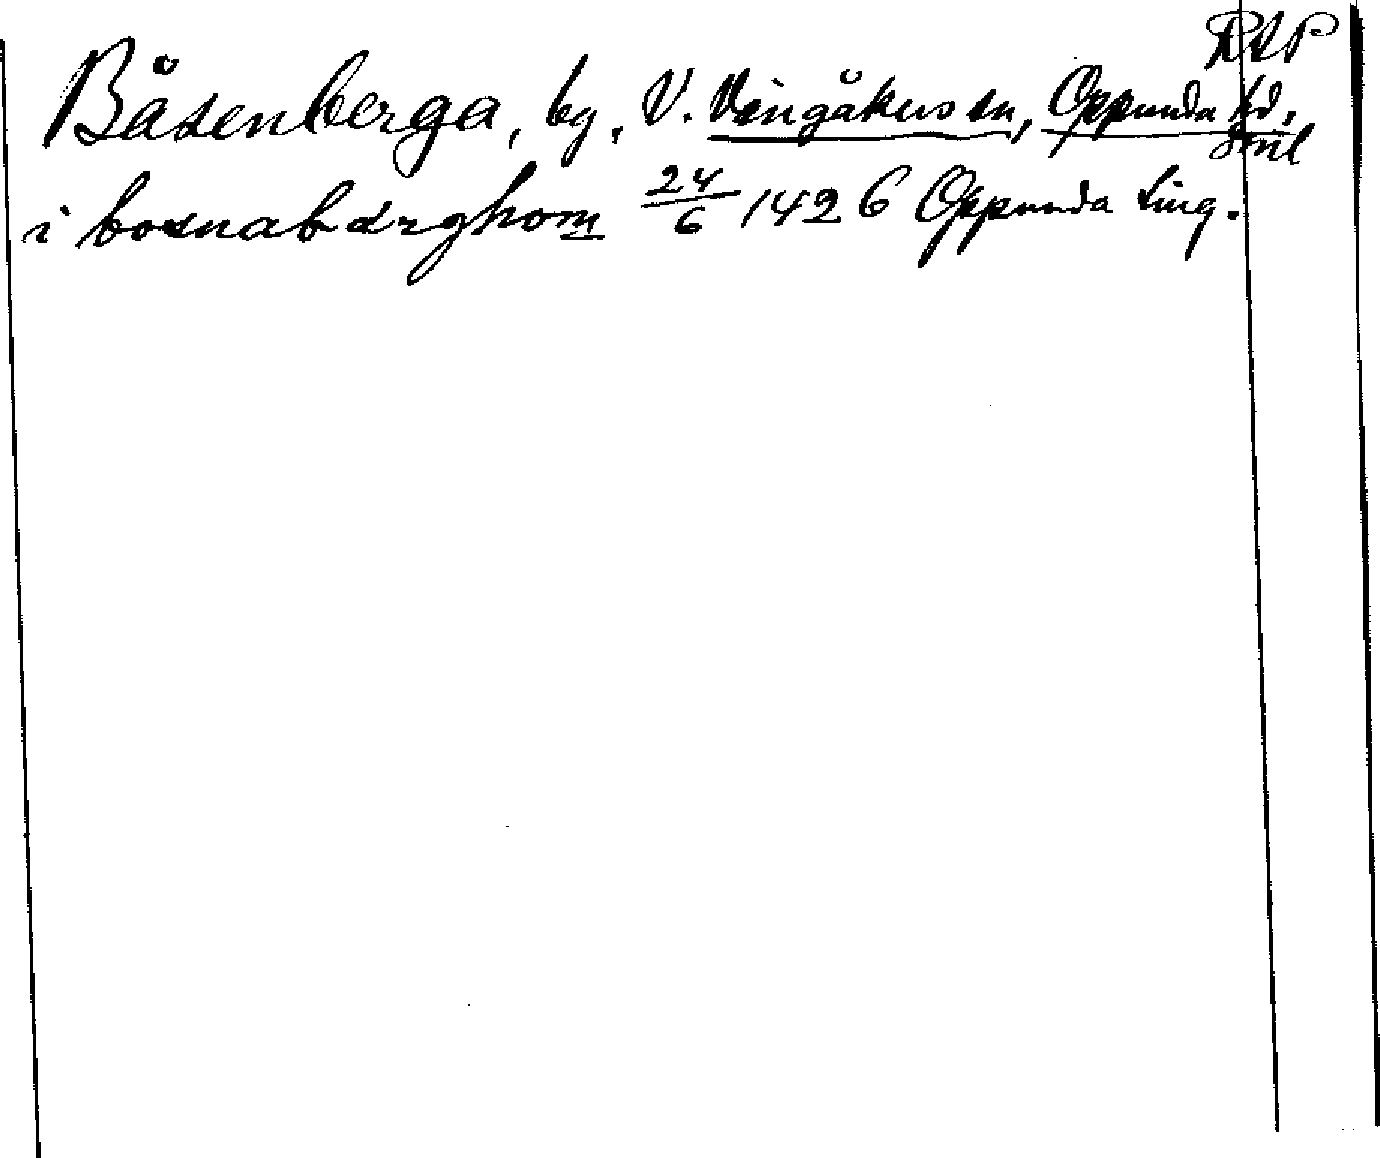 RAP
Båsenberga, by, V. Vingåkers sn, Oppunda hd,
Sml
i bosnabærghom 24/6 1426 Oppunda ting.